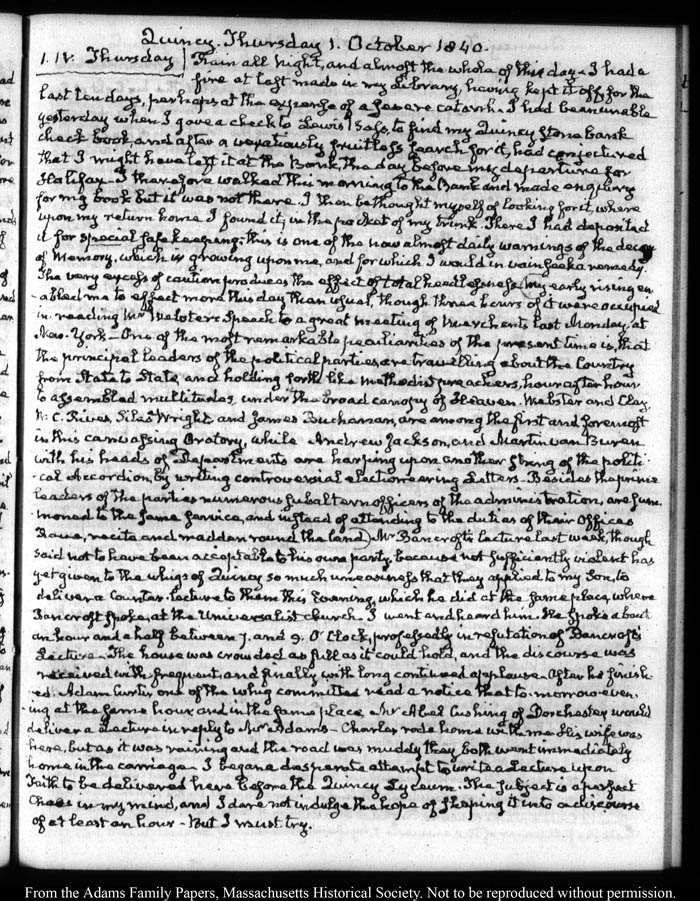 Quincy. Thursday 1. October 1840.
1. IV. Thursday | Rain all night, and almost the whole of this day. I had a
fire at last made in my Library, having kept it off, for the
last ten days, perhaps at the expense of a severe catarrh. I had been unable
yesterday when I gave a check to Lewis Bass, to find my Quincy Stone Bank
check book, and after a vexatiously fruitless search for it, had conjectured
that I might have left it at the Bank, the day before my departure for
Halifax. I therefore walked this morning to the Bank and made enquiry
for my book but it was not there. I then bethought myself of looking for it, where
upon my return home I found it; in the pocket of my trunk. There I had deposited
it for special safe keeping: this is one of the now almost daily warnings of the decay
of Memory, which is growing upon me, and for which I would in vain seek a remedy.
The very excess of caution produces the effect of total heedlessness. My early rising en-
-abled me to effect more this day than usual, though three hours of it were occupied
in reading Mr Webster's Speech to a great meeting of merchants last Monday, at
New-York. One of the most remarkable peculiarities of the present time is, that
the principal leaders of the political parties are travelling about the Country
from State to State, and holding forth like methodist preachers, hour after hour
to assembled multitudes under the broad canopy of Heaven. Webster and Clay,
W. C. Rives, Silas Wright, and James Buchanan, are among the first and foremost
in this canvassing Oratory, while Andrew Jackson, and Martin van Buren
with his heads of Departments are harping upon another string of the politi-
-cal Accordion, by writing controversial electioneering Letters. Besides the prime
leaders of the parties numerous subaltern officers of the administration, are sum-
-moned to the same service, and instead of attending to the duties of their Offices
Rave, recite and madden round the land. Mr Bancroft's lecture last week, though
said not to have been acceptable to his own party, because not sufficiently violent has
yet given to the whigs of Quincy so much uneasiness that they applied to my Son, to
deliver a Counter-lecture to them this Evening, which he did at the same place, where
Bancroft spoke, at the Universalist church. I went and heard him. He spoke about
an hour and a half between 7. and 9. O'Clock, professedly in refutation of Bancroft's
Lecture. The house was crowded as full as it could hold, and the discourse was
received with frequent, and finally with long continued applause. After he finish-
-ed. Adam Curtis, one of the whig committee read a notice that to-morrow even-
-ing at the same hour and in the same place Mr Abel Cushing of Dorchester would
deliver a Lecture in reply to Mr Adams. Charles rode home with me. His wife was
here, but as it was raining and the road was muddy they both went immediately
home in the carriage. I began a desperate attempt to write a Lecture upon
Faith to be delivered here before the Quincy Lyceum. The subject is a perfect
Chaos in my mind, and I dare not indulge the hope of shaping it into a discourse
of at least an hour - But I must try.
From the Adams Family Papers, Massachusetts Historical Society. Not to be reproduced without permission.